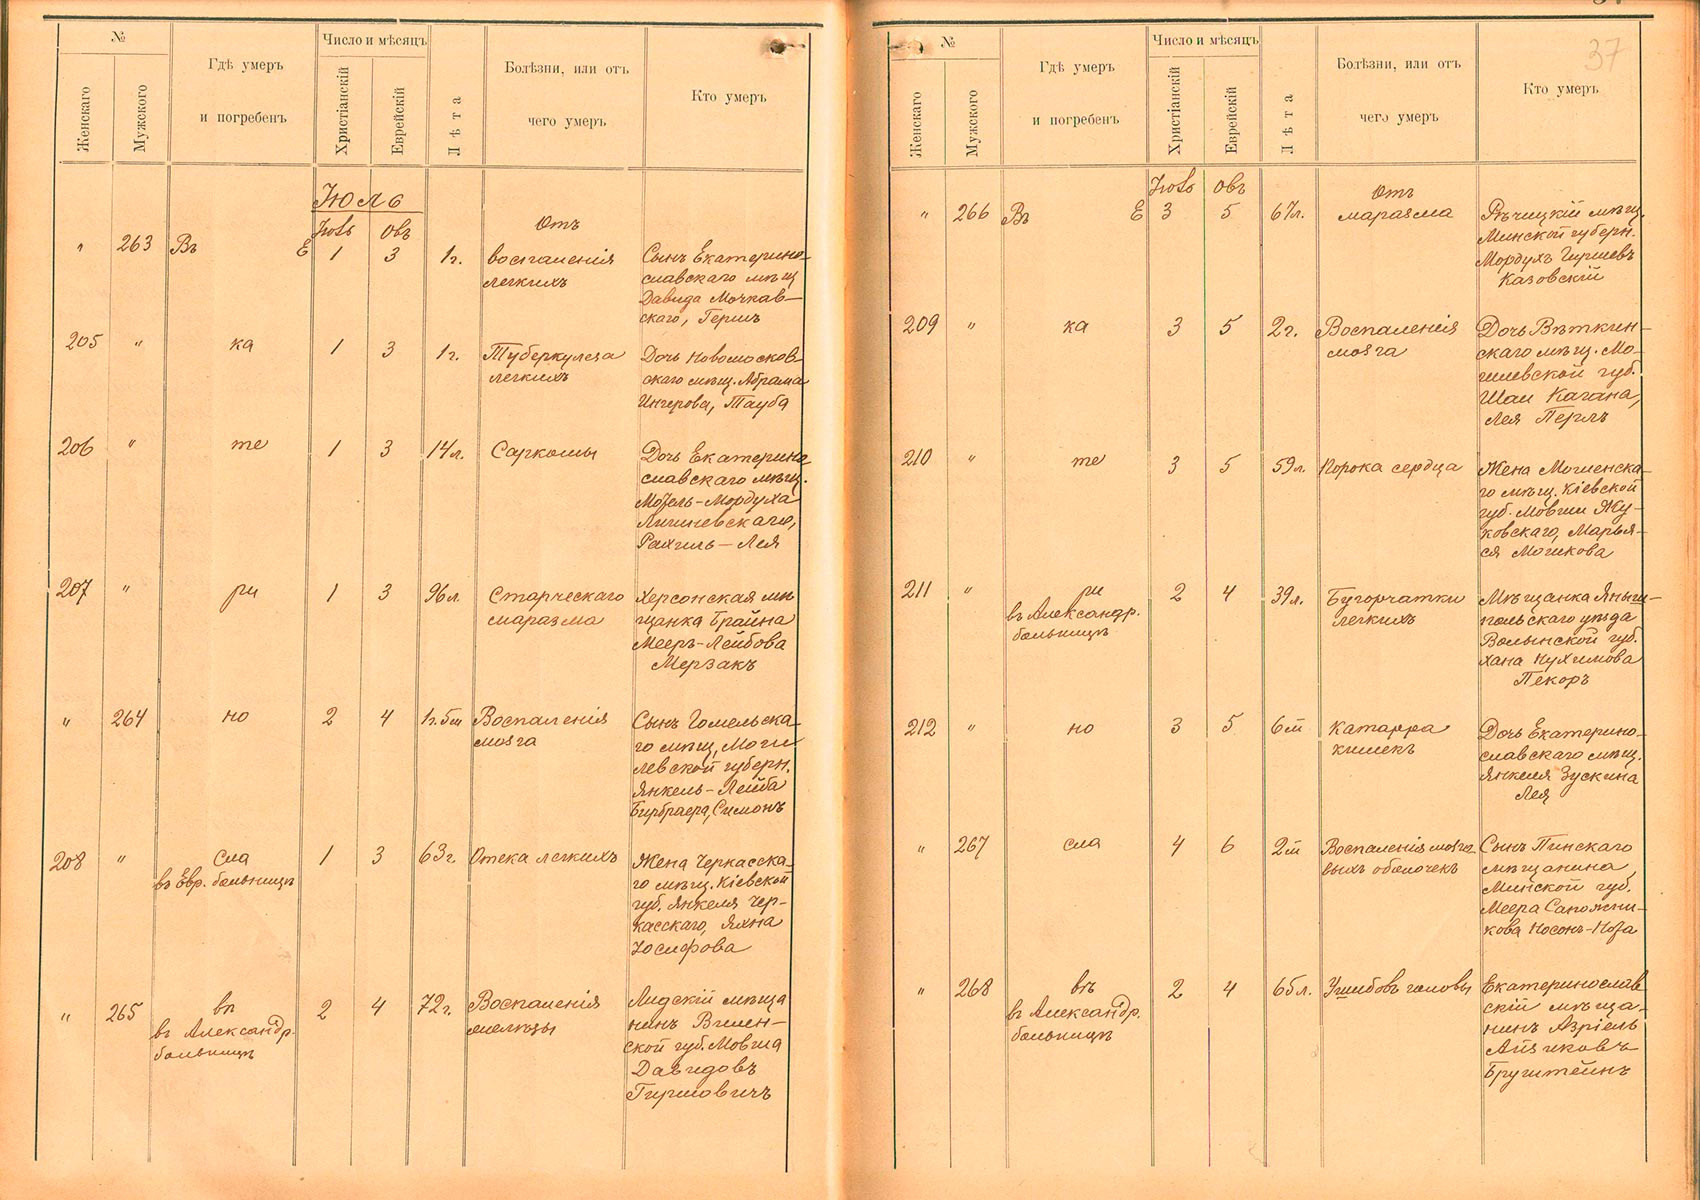 №
Женскаго
Мужского
Гдѣ умеръ
и погребенъ
Число и мѣсяцъ
Христіанскій
Еврейскій
Лѣта
Болѣзни, или отъ
чего умеръ
Кто умеръ
Іюль
Іюль Овъ
Отъ
" 263 Въ Е 1 3 1г. воспаленія Сынъ Екатерино-
легкихъ славскаго мѣщ
Давида Мочкав-
скаго, Гершъ
205 " ка 1 3 1г. Туберкулеза Дочь Новомосков-
легкихъ скаго мѣщ. Абрама
Ингерова, Тауба
206 " те 1 3 14л. Саркомы Дочь Екатерино
славскаго мѣщ.
Мордуха
Рахиль-Лея
207 " ри 1 3 96л. Старческаго Херсонская мѣ
маразма щанка Брайна
Мееръ-Лейбова
Мерзакъ
" 264 но 2 4 1г.5м Воспаленія Сынъ Гомельска
мозга го мѣщ, Моги
левской губерн.
Янкель-Лейба
Бирбраера, Симонъ
208 " сла 1 3 63г. Отека легкихъ Жена Черкасска-
въ Евр. больницѣ го мѣщ. Кіевской
губ. Янкеля Чер-
касскаго, Яхна
Іосифова
" 265 вѣ 2 4 72г. Воспаленія Лидскій мѣща
въ Александр. нинъ Вилен-
больницѣ ской губ. Мовша
Давидовъ
Гиршовичъ
37
№
Женскаго
Мужского
Гдѣ умеръ
и погребенъ
Число и мѣсяцъ
Христіанскій
Еврейскій
Лѣта
Болѣзни, или отъ
чего умеръ
Кто умеръ
Іюль Овъ
Отъ
" 266 Въ Е 3 5 67л. маразма Рѣчицкій мѣщ.
Минской губерн.
Мордухъ Гиршевъ
Казовскій
209 " ка 3 5 2г. Воспаленія Дочь Вѣткин-
мозга скаго мѣщ. Мо-
гилевской губ.
Шаи Кагана,
Лея Перлъ
210 " те 3 5 59л. Порока сердца Жена
го мѣщ. Кіевской
губ. Мовши Жу-
ковскаго, Марья-
ся Мошкова
211 " ри 2 4 39л. Бугорчатки Мѣщанка
въ Александр. легкихъ польскаго уѣзда
больницѣ Волынской губ.
Хана Нухимова
Пекоръ
212 " но 3 5 6м Катарра Дочь Екатерино-
кишекъ славскаго мѣщ.
Янкеля Зускина
Лея
" 267 сла 4 6 2м Воспаленія мозго- Сынъ Пинскаго
выхъ оболочекъ мѣщанина
Минской губ.
Меера Сапожни-
кова Носонъ-Нота
" 268 вѣ 2 4 65л. Ушибовъ головы Екатеринослав
въ Александр. скій мѣща-
больницѣ нинъ Азріель
Айзиковъ
Бруштейнъ